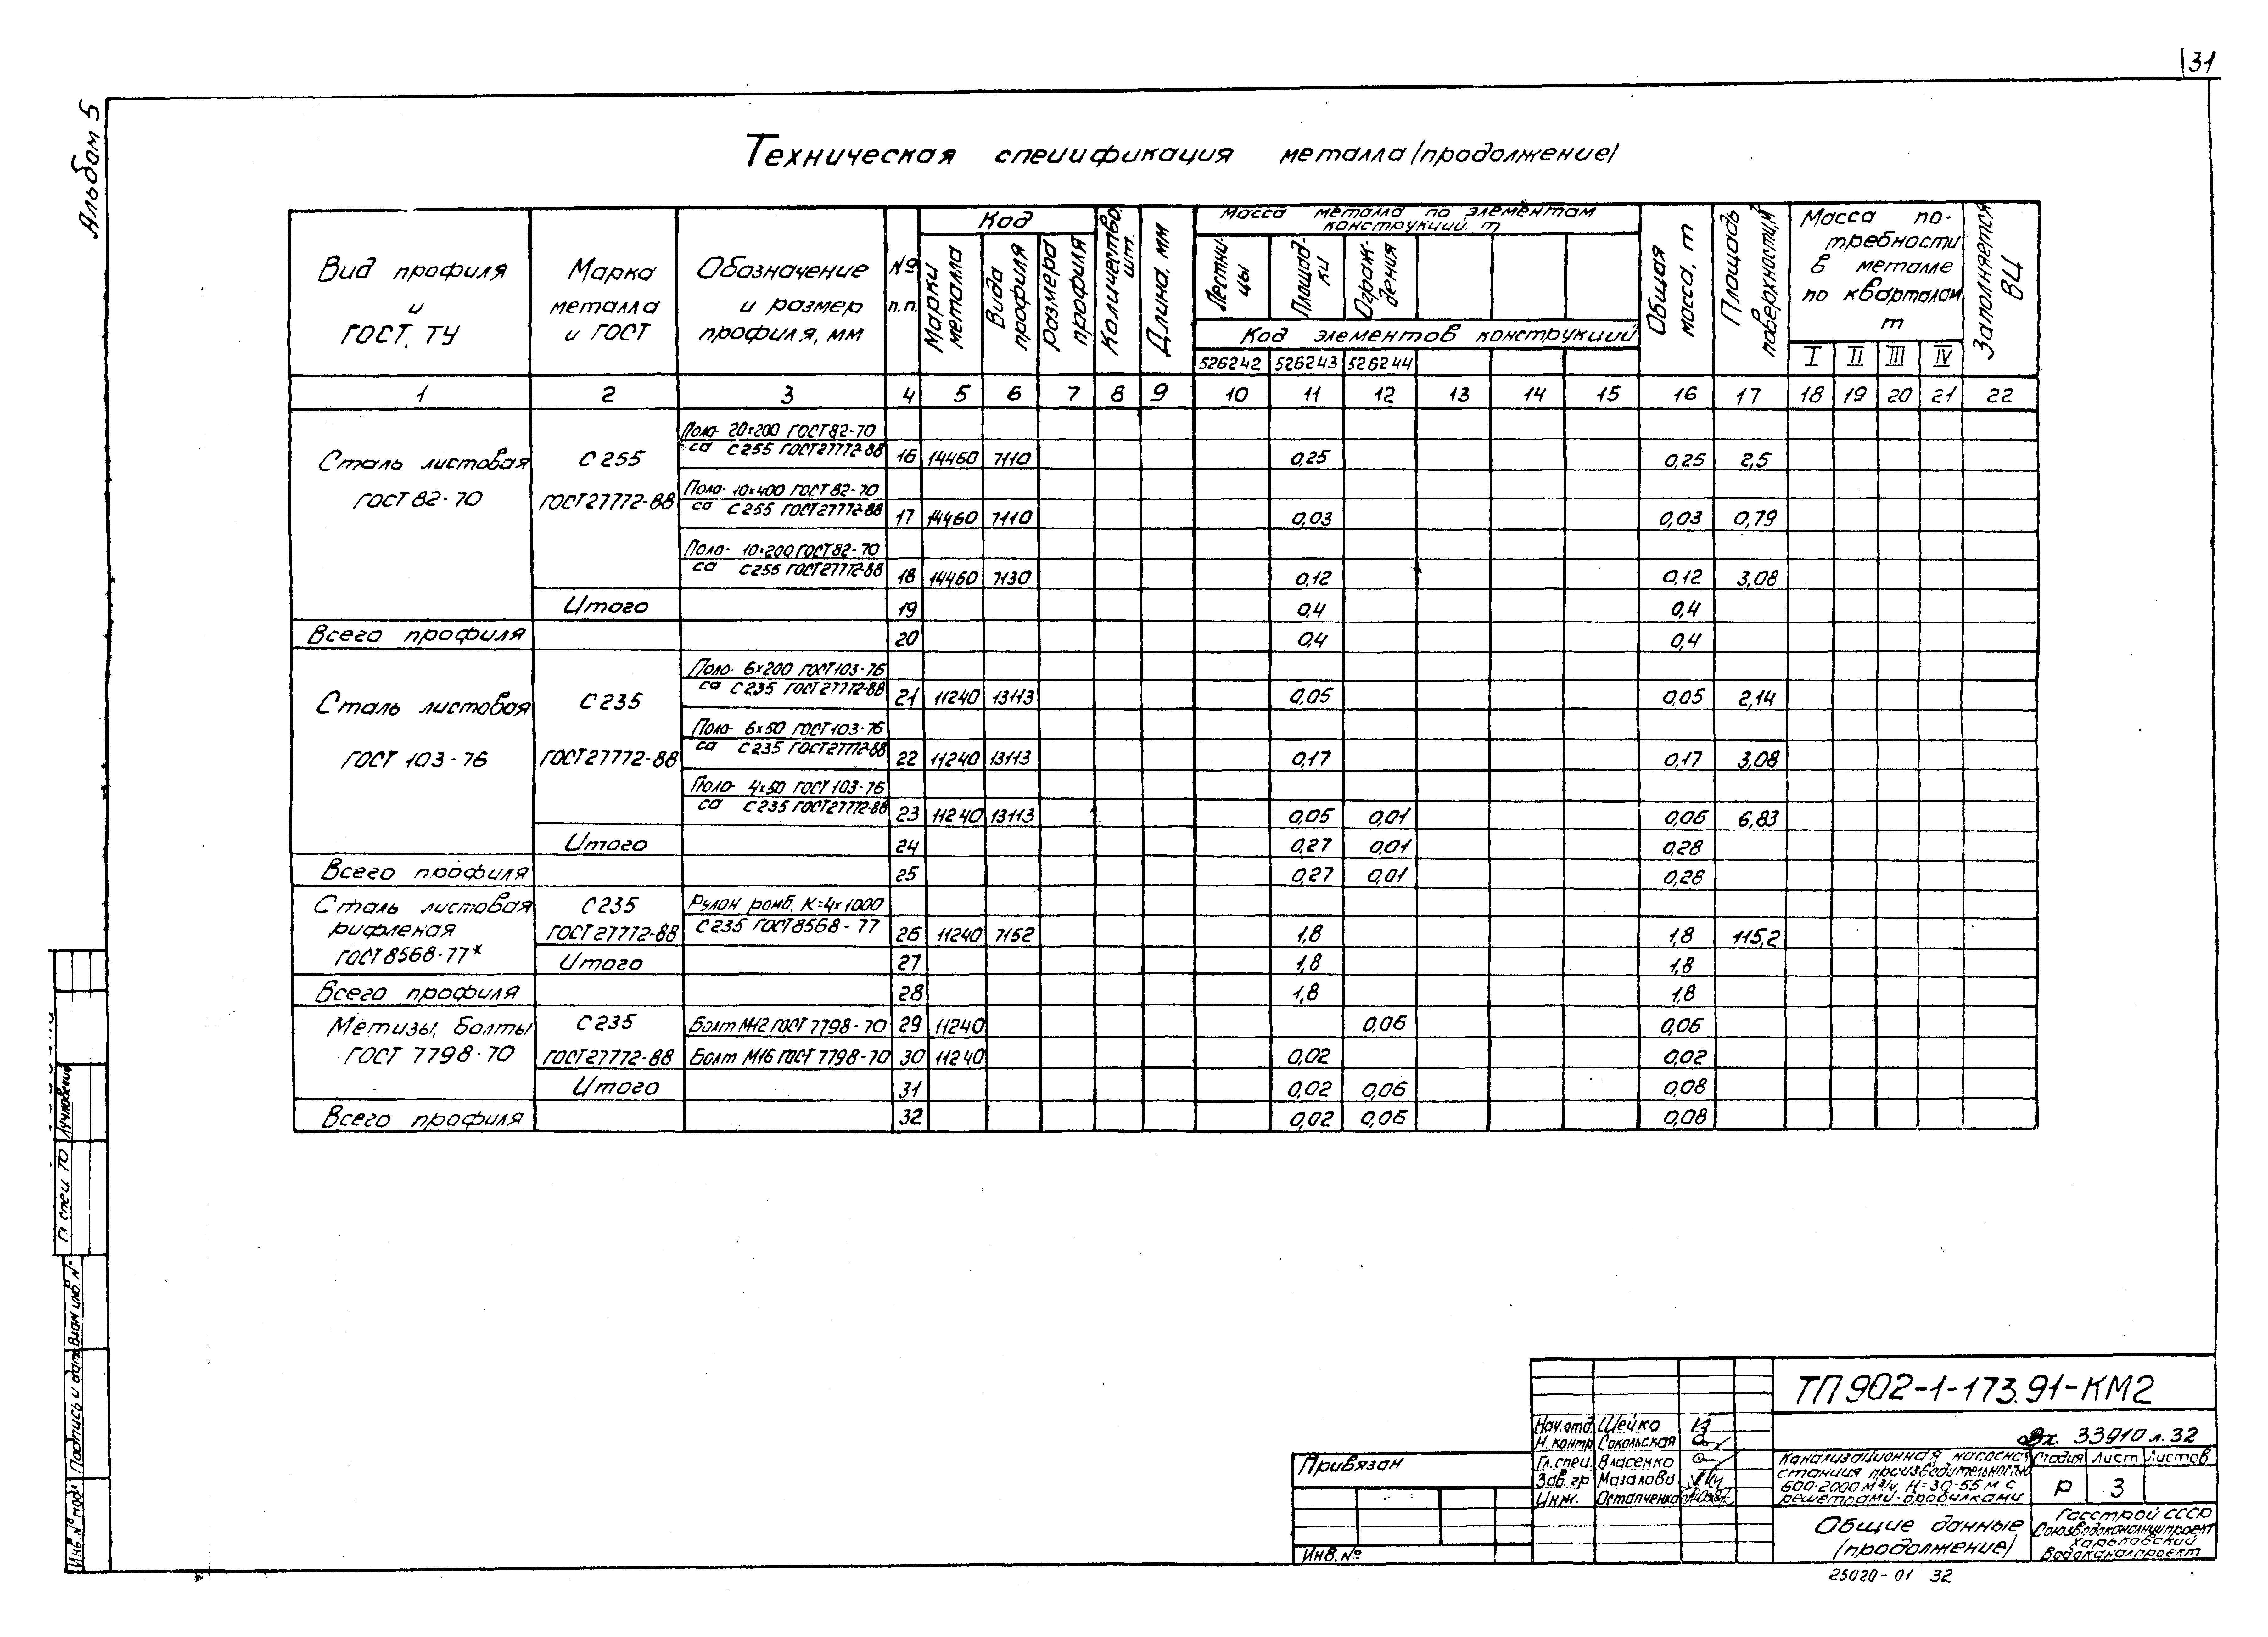 31
Альбом 5
Техническая спецификация металла (продолжение)
Вид профиля и ГОСТ, ТУ
Марка металла и ГОСТ
Обозначение и размер профиля, мм
№ п.п.
Код
Марки металла
Вида профиля
размера профиля
Количество, шт.
Длина, мм
Масса металла по элементам конструкций, т
Лестницы
Площадки
Ограждения
Код элементов конструкций
526242 526243 526244
Общая масса, т
Площадь поверхности, м²
Масса потребности в металле по кварталам т
I II III IV
Заполняется ВЦ
1 2 3 4 5 6 7 8 9 10 11 12 13 14 15 16 17 18 19 20 21 22
Сталь листовая
ГОСТ 82-70
С 255
ГОСТ 27772-88
Поло- 20×200 ГОСТ 82-70
са С 255 ГОСТ 27772-88 16 14460 7110 0,25 0,25 2,5
Поло- 10×400 ГОСТ 82-70
са С 255 ГОСТ 27772-88 17 14460 7110 0,03 0,03 0,79
Поло- 10×200 ГОСТ 82-70
са С 255 ГОСТ 27772-88 18 14460 7130 0,12 0,12 3,08
Итого 19 0,4 0,4
Всего профиля 20 0,4 0,4
Сталь листовая
ГОСТ 103-76
С 235
ГОСТ 27772-88
Поло- 6×200 ГОСТ 103-76
са С 235 ГОСТ 27772-88 21 11240 13113 0,05 0,05 2,14
Поло- 6×50 ГОСТ 103-76
са С 235 ГОСТ 27772-88 22 11240 13113 0,17 0,17 3,08
Поло- 4×50 ГОСТ 103-76
са С 235 ГОСТ 27772-88 23 11240 13113 0,05 0,01 0,06 6,83
Итого 24 0,27 0,01 0,28
Всего профиля 25 0,27 0,01 0,28
Сталь листовая
рифленая
ГОСТ 8568-77*
С 235
ГОСТ 27772-88
Рулон ромб. К=4×1000
С 235 ГОСТ 8568-77 26 11240 7152 1,8 1,8 115,2
Итого 27 1,8 1,8
Всего профиля 28 1,8 1,8
Метизы, болты
ГОСТ 7798-70
С 235
ГОСТ 27772-88
Болт М12 ГОСТ 7798-70 29 11240 0,06 0,06
Болт М16 ГОСТ 7798-70 30 11240 0,02 0,02
Итого 31 0,02 0,06 0,08
Всего профиля 32 0,02 0,06 0,08
Гл. спец ТО
Взам инв. №
Подпись и дата
Инв. № подл
Привязан
Инв. №
Нач. отд. Шейко
Н. контр Сокольская
Гл. спец. Власенко
Зав. гр Мазалова
Инж. Остапченко
ТП 902-1-173.91-КМ2
Вх. 33910 л. 32
Канализационная насосная
станция производительностью
600-2000 м³/ч, Н=30-55 м с
решетками-дробилками
Стадия Лист Листов
Р 3
Общие данные
(продолжение)
Госстрой СССР
Союзводоканалниипроект
Харьковский
Водоканалпроект
25020-01 32